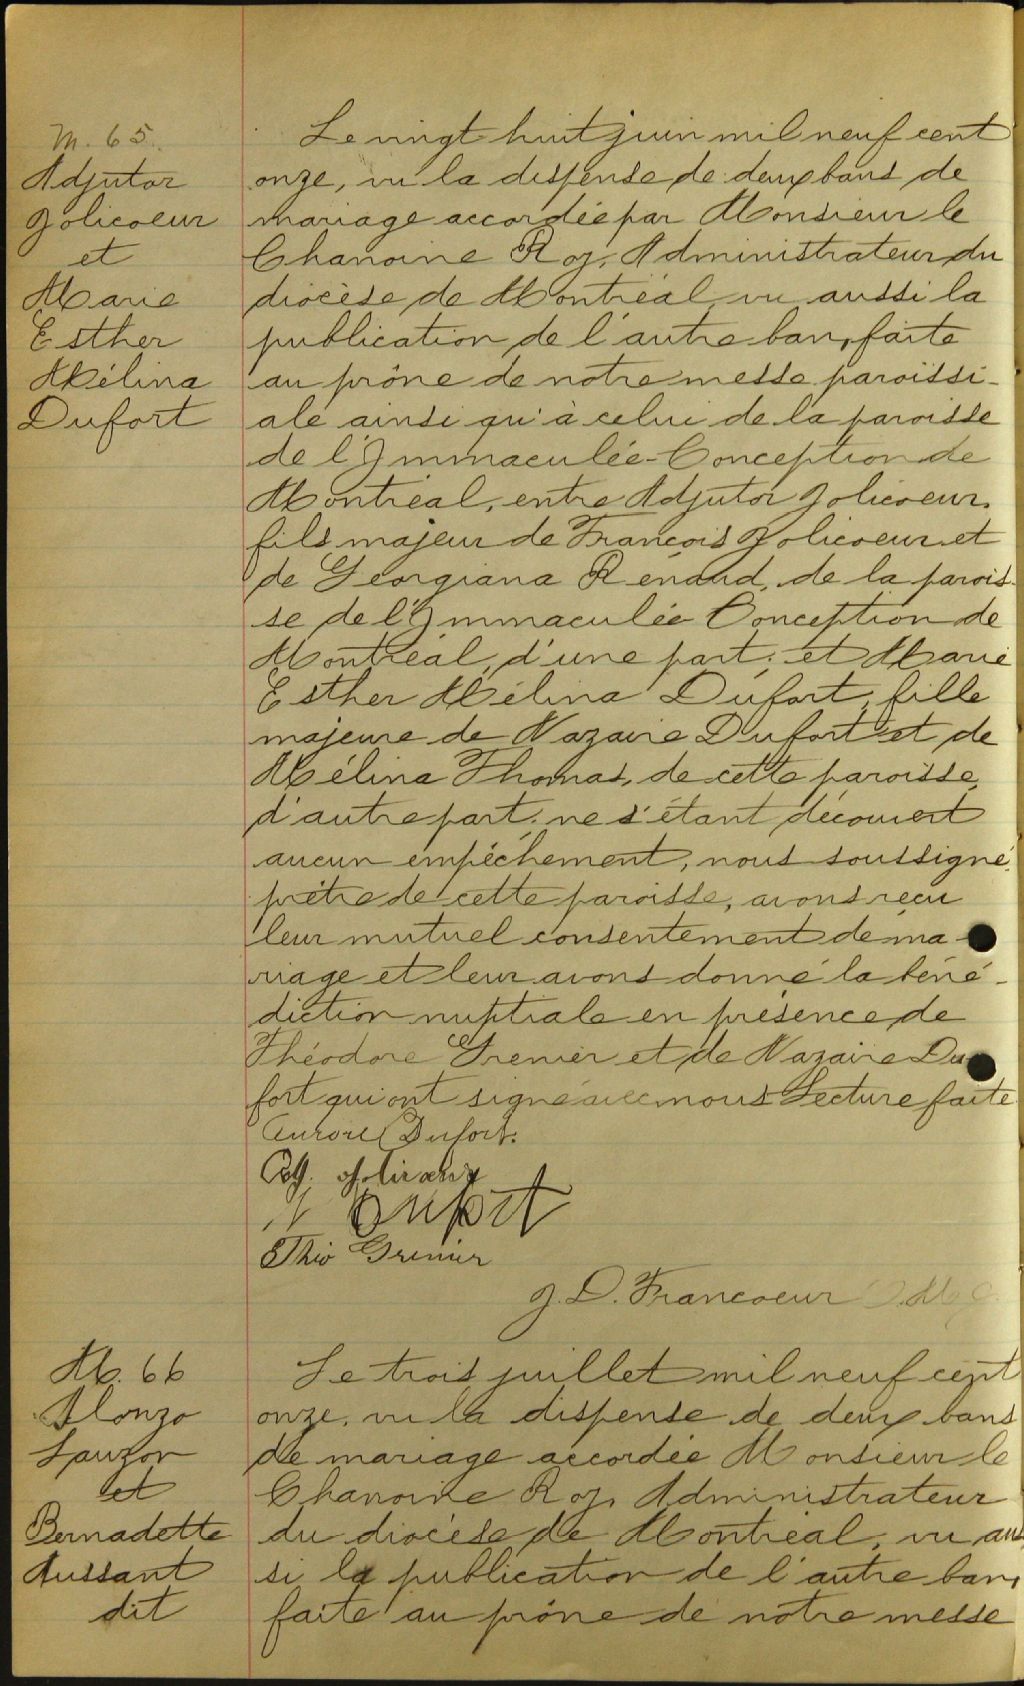 M. 65.
Adjutor
Jolicoeur
et
Marie
Esther
Mélina
Dufort
Le vingt huit juin mil neuf cent
onze, vu la dispense de deux bans de
mariage accordée par Monsieur le
Chanoine Roy, Administrateur du
diocèse de Montréal, vu aussi la
publication de l'autre ban, faite
au prône de notre messe paroissi-
ale ainsi qu'à celui de la paroisse
de l'Immaculée-Conception de
Montréal, entre Adjutor Jolicoeur,
fils majeur de François Jolicoeur et
de Georgiana Renaud, de la parois-
se de l'Immaculée Conception de
Montréal, d'une part; et Marie
Esther Mélina Dufort, fille
majeure de Nazaire Dufort et de
Mélina Thomas, de cette paroisse,
d'autre part; ne s'étant découvert
aucun empêchement, nous soussigné,
prêtre de cette paroisse, avons reçu
leur mutuel consentement de ma-
riage et leur avons donné la béné-
diction nuptiale en présence de
Théodore Grenier et de Nazaire Du-
fort qui ont signé avec nous Lecture faite
Aurore Dufort.
Adj. Jolicoeur
N Dufort
Théo Grenier
J. D. Francoeur
M. 66
Alonzo
Lauzon
et
Bernadette
Aussant
dit
Le trois juillet mil neuf cent
onze, vu la dispense de deux bans
de mariage accordée Monsieur le
Chanoine Roy, Administrateur
du diocèse de Montréal, vu aus
si la publication de l'autre ban,
faite au prône de notre messe